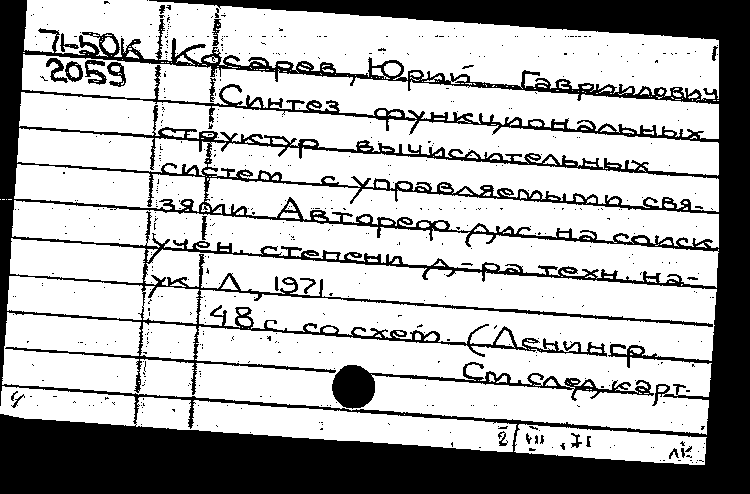 71-50К Косарев, Юрий Гавриилович
2059
Синтез функциональных
структур вычислительных
систем с управляемыми свя-
зями. Автореф. дис. на соиск.
учен. степени д-ра техн. на-
ук Л., 1971.
48 с. со схем. (Ленингр.
См. след. карт.
2/VII.71
лк